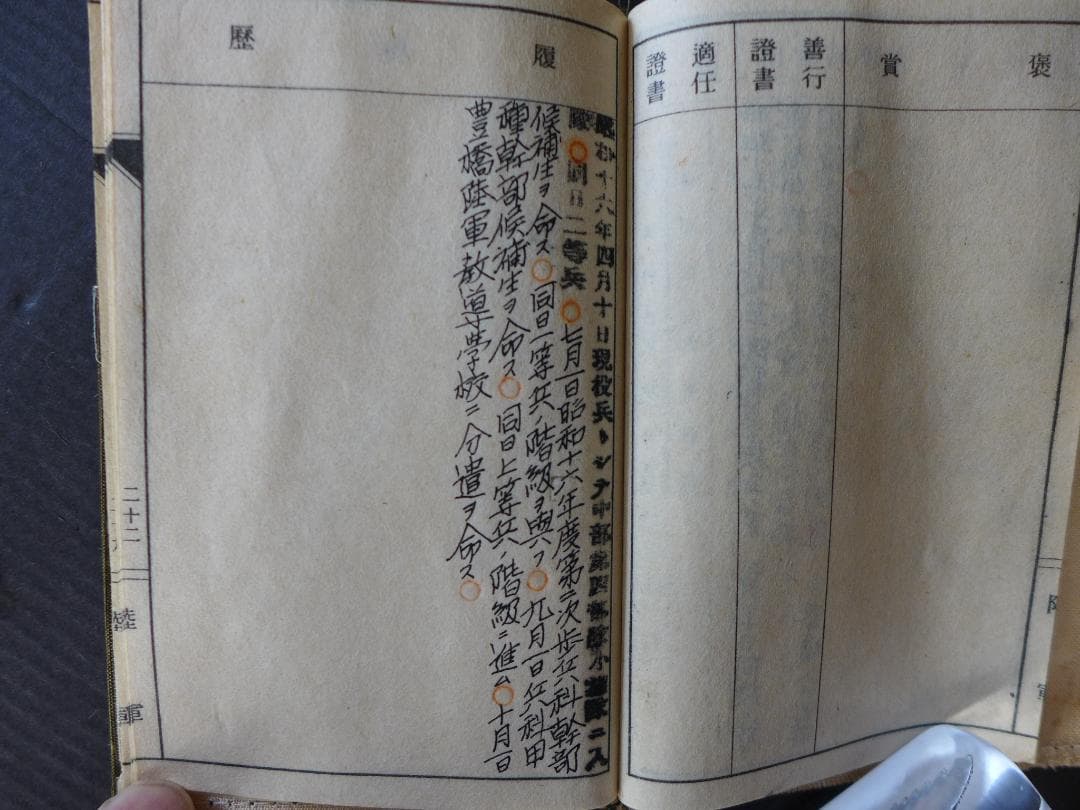 褒賞
善行證書
適任證書
履歷
昭和十六年四月十日現役兵トシテ中部第四部隊小隊ニ入
隊○同日二等兵○七月一日昭和十六年度第二次歩兵科幹部
候補生ヲ命ス○同日一等兵ノ階級ヲ與フ○九月一日兵科甲
種幹部候補生ヲ命ス○同日上等兵ノ階級ニ進ム○十月一日
豊橋陸軍教導学校ニ分遣ヲ命ス○
二十二
陸軍